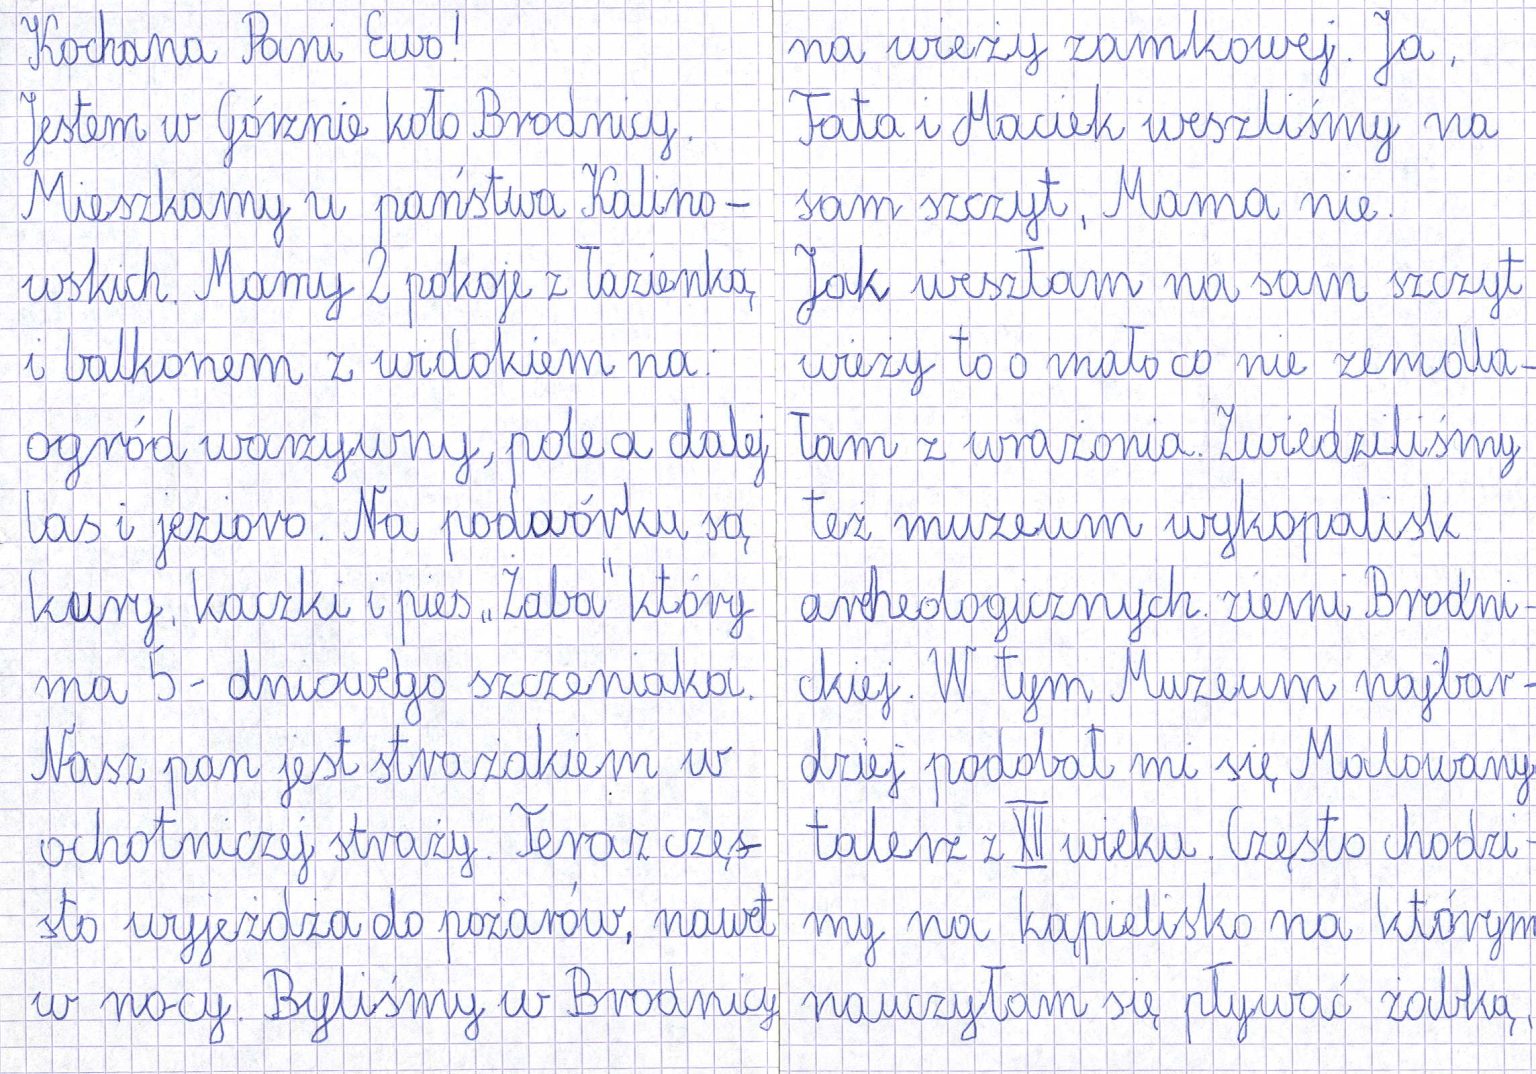 Kochana Pani Ewo!
Jestem w Górznie koło Brodnicy.
Mieszkamy u państwa Kalino-
wskich. Mamy 2 pokoje z łazienką
i balkonem z widokiem na:
ogród warzywny, pole a dalej
las i jezioro. Na podwórku są
kury, kaczki i pies „Żaba" który
ma 5-dniowego szczeniaka.
Nasz pan jest strażakiem w
ochotniczej straży. Teraz częs-
sto wyjeżdża do pożarów, nawet
w nocy. Byliśmy w Brodnicy
na wieży zamkowej. Ja,
Tata i Maciek weszliśmy na
sam szczyt, Mama nie.
Jak weszłam na sam szczyt
wieży to o mało co nie zemdla-
łam z wrażenia. Zwiedziliśmy
też muzeum wykopalisk
archeologicznych ziemi Brodni-
ckiej. W tym Muzeum najbar-
dziej podobał mi się Malowany
talerz z XII wieku. Często chodzi-
my na kąpielisko na którym
nauczyłam się pływać żabką,